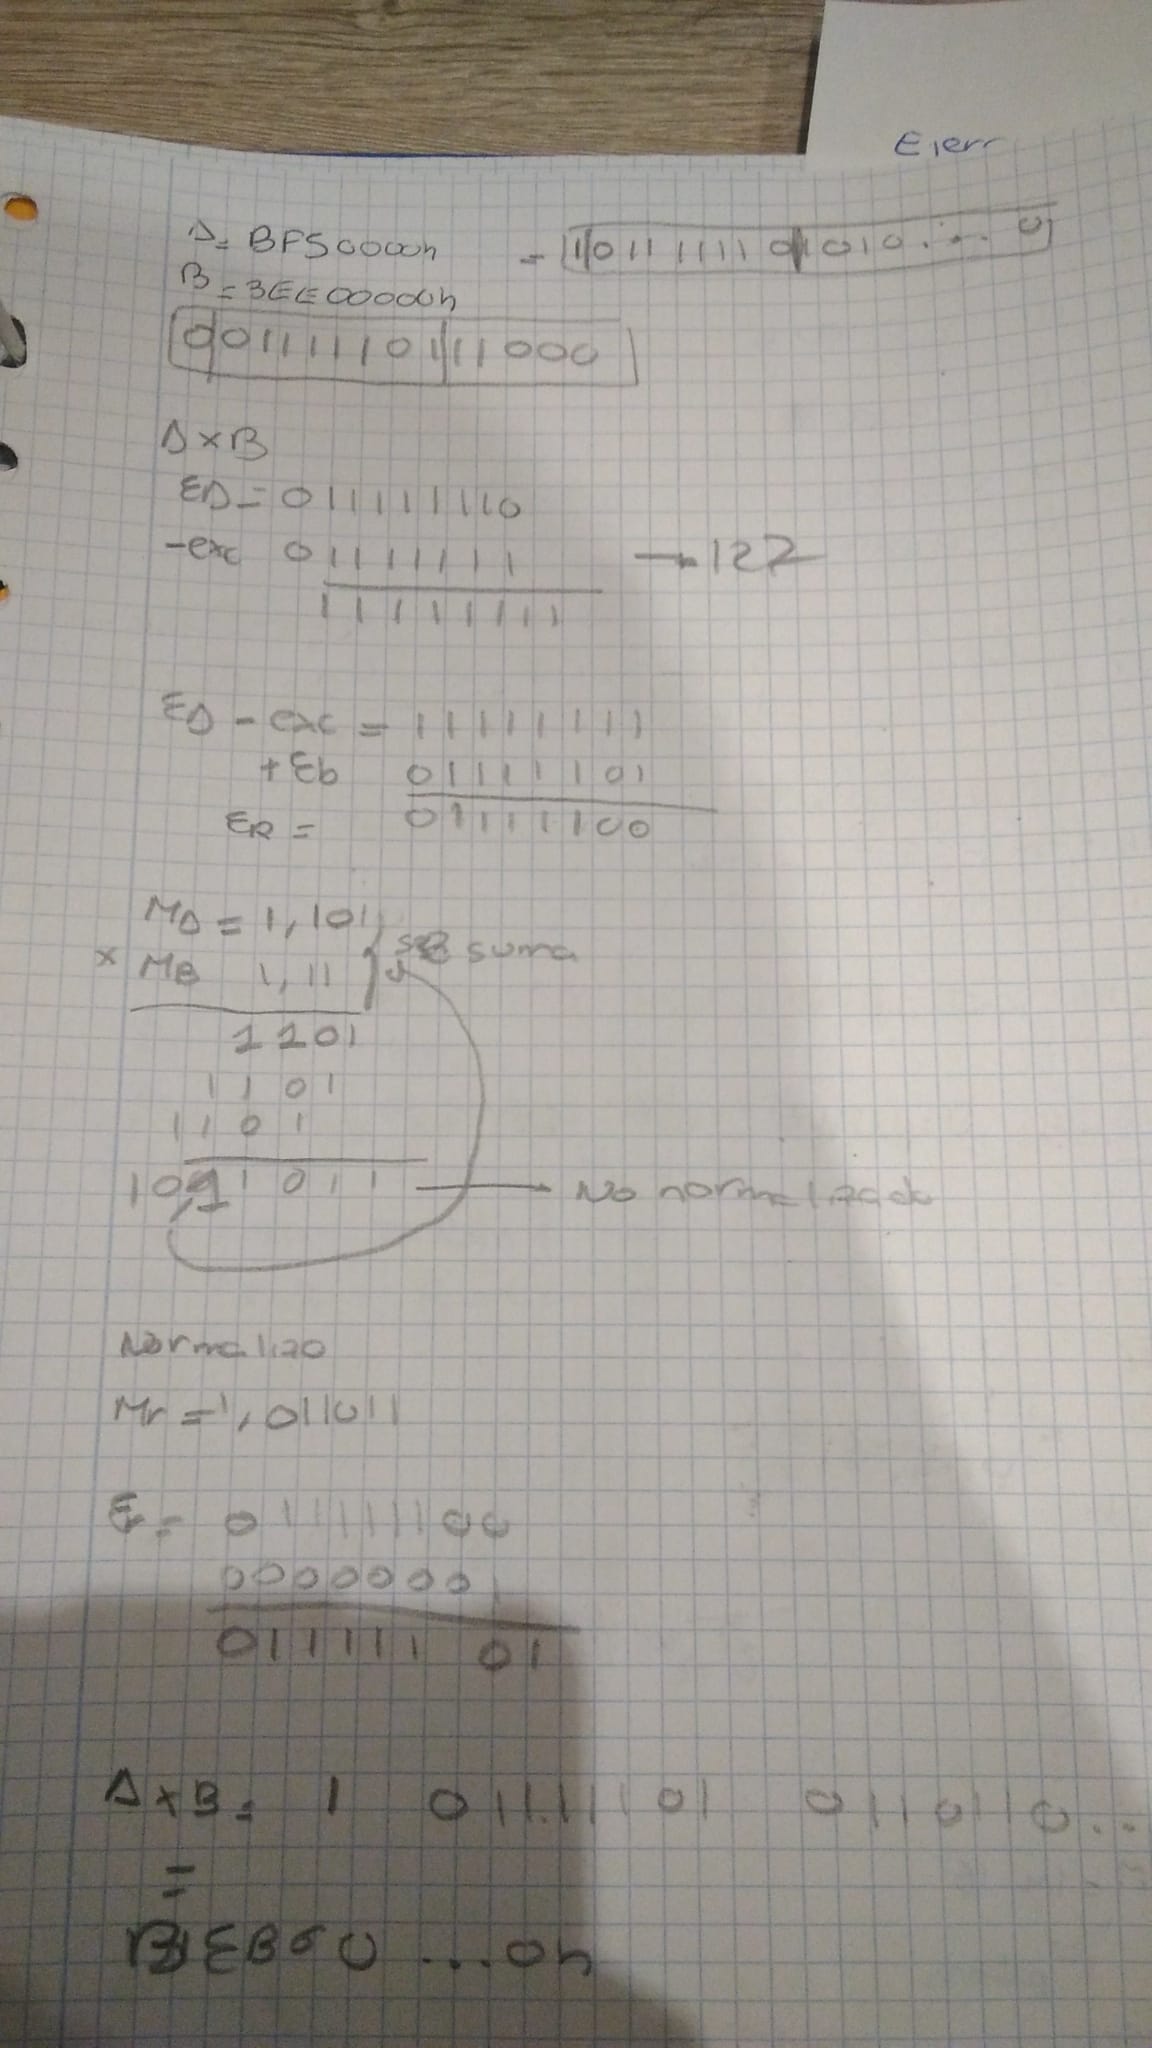 Ejerr
A= BF50000h = 1 0 1 1 1 1 1 1 1 0 1 0 1 0 ... 0
B = 3EE00000h
0 0 1 1 1 1 1 1 0 1 1 1 0 0 0
A x B
EA = 0 1 1 1 1 1 1 1 0
-exc 0 1 1 1 1 1 1 1 → 127
1 1 1 1 1 1 1 1
EA - exc = 1 1 1 1 1 1 1 1
+ Eb 0 1 1 1 1 1 0 1
ER = 0 1 1 1 1 1 0 0
MA = 1,101
x MB 1,11 se suma
1101
1101
1101
1 0 , 1 1 0 1 1 → No normalizado
Normalizo
Mr = 1,011011
E = 0 1 1 1 1 1 1 0 0
0 0 0 0 0 0 0 1
0 1 1 1 1 1 0 1
A x B = 1 0 1 1 1 1 1 0 1 0 1 1 0 1 1 0 ...
=
BEB60 ... 0h